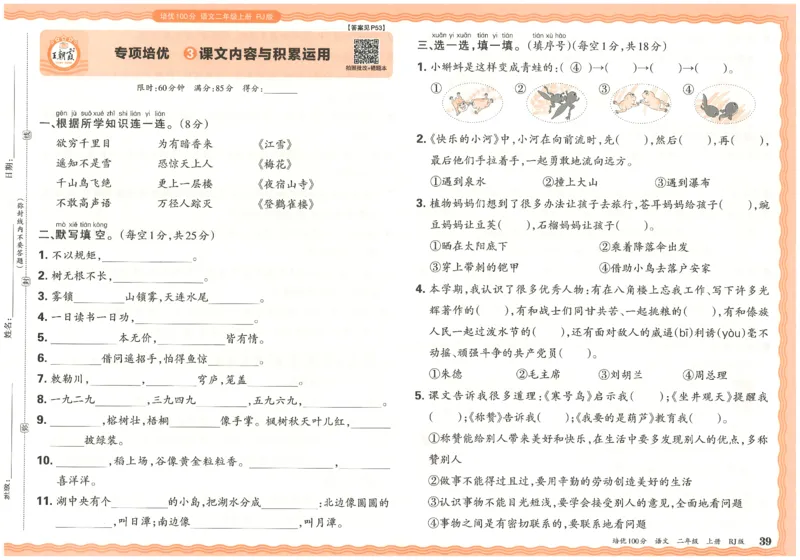 培优100分 语文二年级上册 RJ版
【答案见P53】
王朝霞
专项培优 ③课文内容与积累运用
限时:60分钟 满分:85分 得分:______
gēn jù suǒ xué zhī shi lián yi lián
一、根据所学知识连一连。(8分)
欲穷千里目 为有暗香来 《江雪》
遥知不是雪 恐惊天上人 《梅花》
千山鸟飞绝 更上一层楼 《夜宿山寺》
不敢高声语 万径人踪灭 《登鹳雀楼》
mò xiě tián kòng
二、默写填空。(每空1分,共25分)
1. 不以规矩,______。
2. 树无根不长,______。
3. 雾锁______山锁雾,天连水尾______。
4. 一日读书一日功,______。
5. ______本无价,______皆有情。
6. ______借问遥招手,怕得鱼惊______。
7. 敕勒川,______,______穹庐,笼盖______。
8. 一九二九______,三九四九______,五九六九,______。
9. ______,榕树壮,梧桐______像手掌。枫树秋天叶儿红,______
______披绿装。
10. ______,稻上场,谷像黄金粒粒香。______,______
喜洋洋。
11. 湖中央有个______的小岛,把湖水分成______:北边像圆圆的
______,叫日潭;南边像______,叫月潭。
日期:
(弥封线内不要答题)
姓名:
班级:
xuǎn yi xuǎn tián yi tián tián xù hào
三、选一选,填一填。(填序号)(每空1分,共18分)
1. 小蝌蚪是这样变成青蛙的:( ④ )→( )→( )→( )。
① ② ③ ④
2. 《快乐的小河》中,小河在向前流时,先( ),然后( ),再( ),
最后他们手拉着手,一起勇敢地流向远方。
①遇到泉水 ②撞上大山 ③遇到瀑布
3. 植物妈妈们想到了很多办法让孩子去旅行,苍耳妈妈给孩子( ),豌
豆妈妈让豆荚( ),石榴妈妈让孩子( )。
①晒在太阳底下 ②乘着降落伞出发
③穿上带刺的铠甲 ④借助小鸟去落户安家
4. 本学期,我认识了很多优秀人物:有在八角楼上忘我工作、写下许多光
辉著作的( ),有和战士们同甘共苦、一起挑粮的( ),有和傣族
人民一起过泼水节的( ),还有面对敌人的威逼(bī)利诱(yòu)毫不
动摇、顽强斗争的共产党员( )。
①朱德 ②毛主席 ③刘胡兰 ④周总理
5. 课文告诉我很多道理:《寒号鸟》启示我( );《坐井观天》提醒我
( );《称赞》告诉我( );《我要的是葫芦》教育我( )。
①称赞能给别人带来美好和快乐,在生活中要多发现别人的优点,多称
赞别人
②做事不能得过且过,要用辛勤的劳动创造美好的生活
③认识事物不能目光短浅,要学会接受别人的意见,全面地看问题
④事物之间是有密切联系的,要联系地看问题
培优100分 语文 二年级 上册 RJ版 39